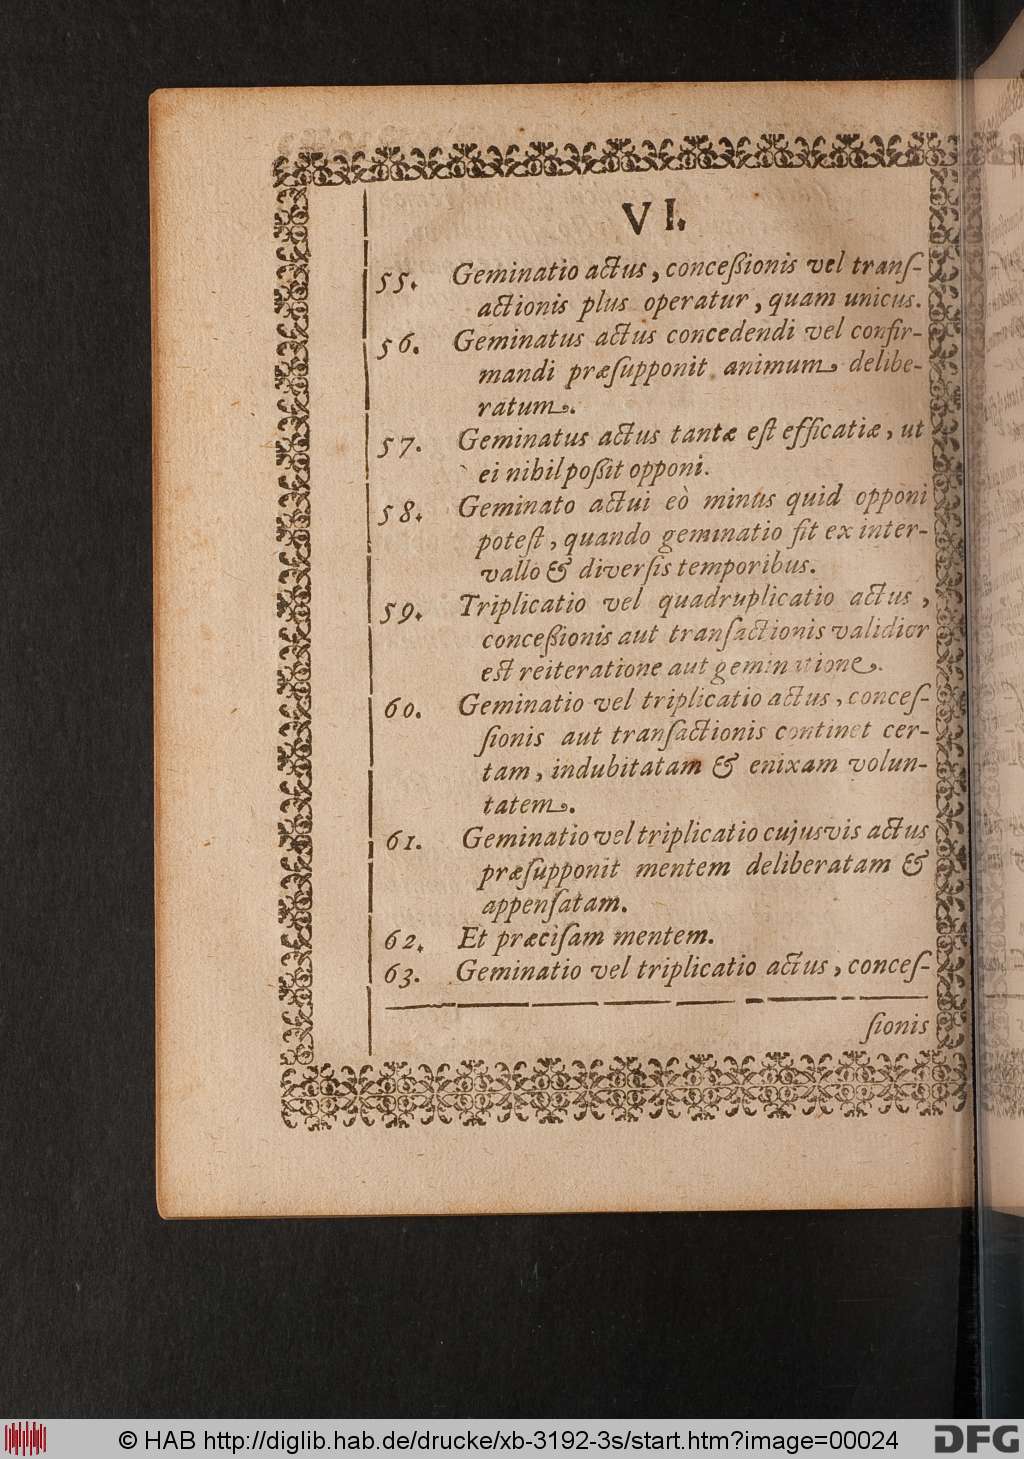 VI.
55. Geminatio actus, conceßionis vel tranſ-
actionis plus operatur, quam unicus.
56. Geminatus actus concedendi vel confir-
mandi præſupponit animum delibe-
ratum.
57. Geminatus actus tantæ eſt efficatiæ, ut
ei nihil poßit opponi.
58. Geminato actui eò minus quid opponi
poteſt, quando geminatio fit ex inter-
vallo & diverſis temporibus.
59. Triplicatio vel quadruplicatio actus,
conceßionis aut tranſactionis validior
est reiteratione aut geminatione.
60. Geminatio vel triplicatio actus, conceſ-
ſionis aut tranſactionis continet cer-
tam, indubitatam & enixam volun-
tatem.
61. Geminatio vel triplicatio cujusvis actus
præſupponit mentem deliberatam &
appenſatam.
62. Et præciſam mentem.
63. Geminatio vel triplicatio actus, conceſ-
ſionis
© HAB http://diglib.hab.de/drucke/xb-3192-3s/start.htm?image=00024
DFG